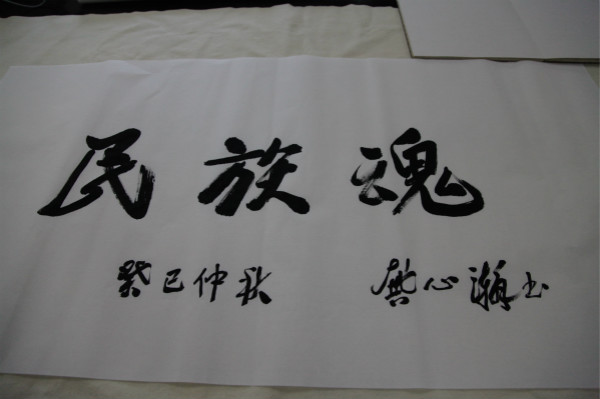 民族魂
癸巳仲秋 龚心瀚书